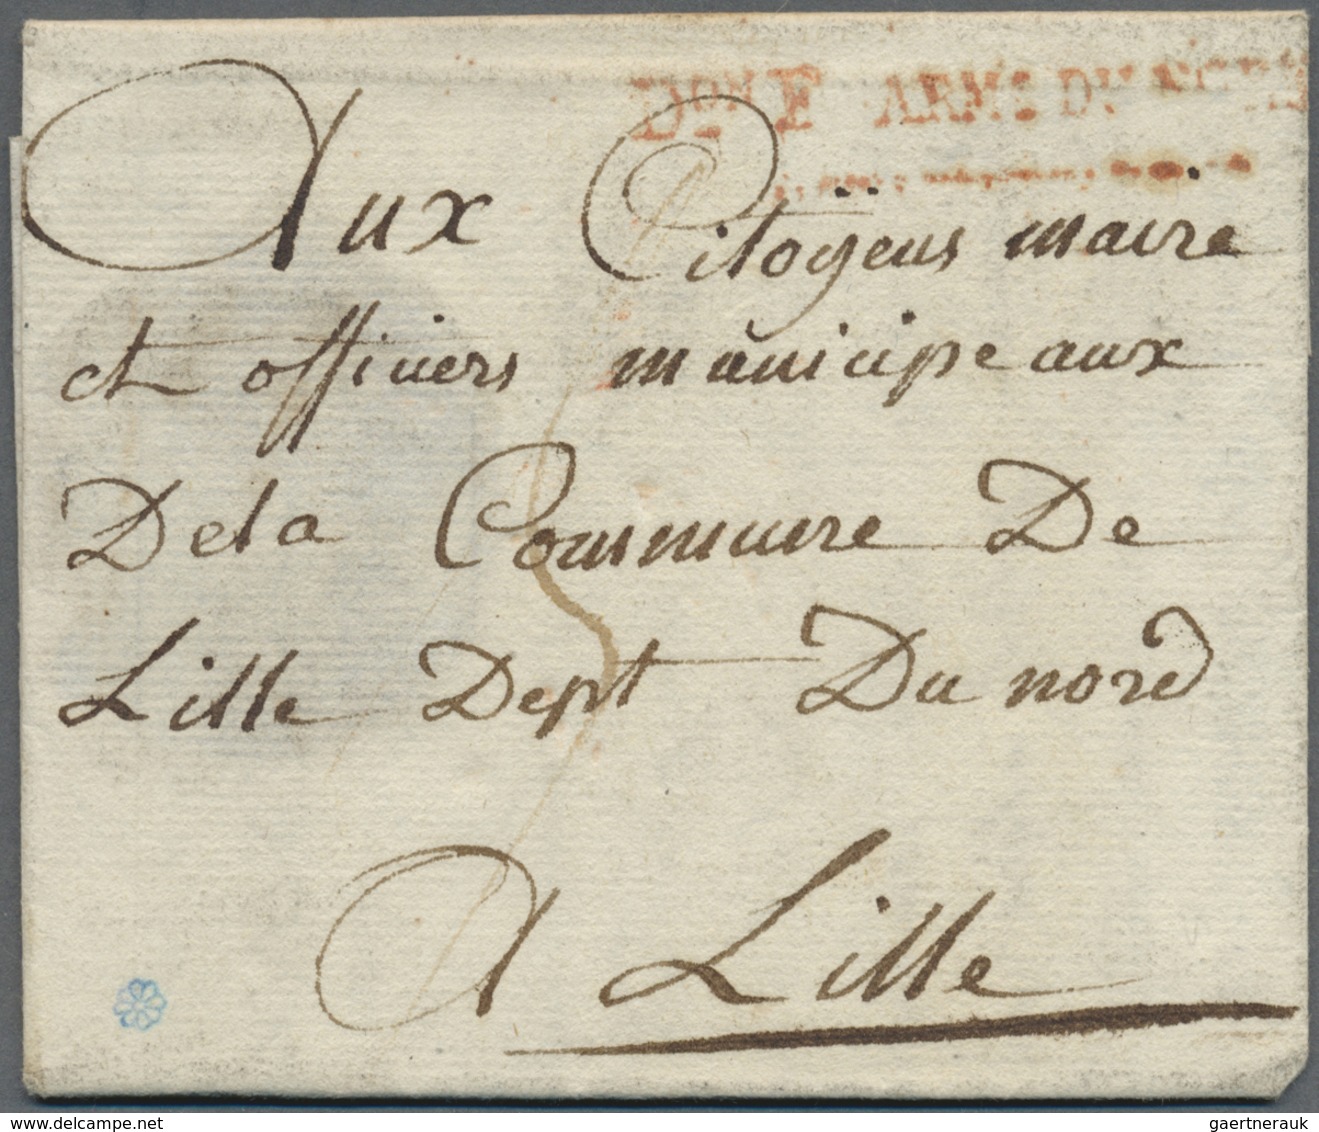 Don F ARM: DU NORD
Aux Citoÿens maire
et officiers municipeaux
De la Commune De
Lille Dept Du nord
A Lille
delcampe.net
gaertnerauk